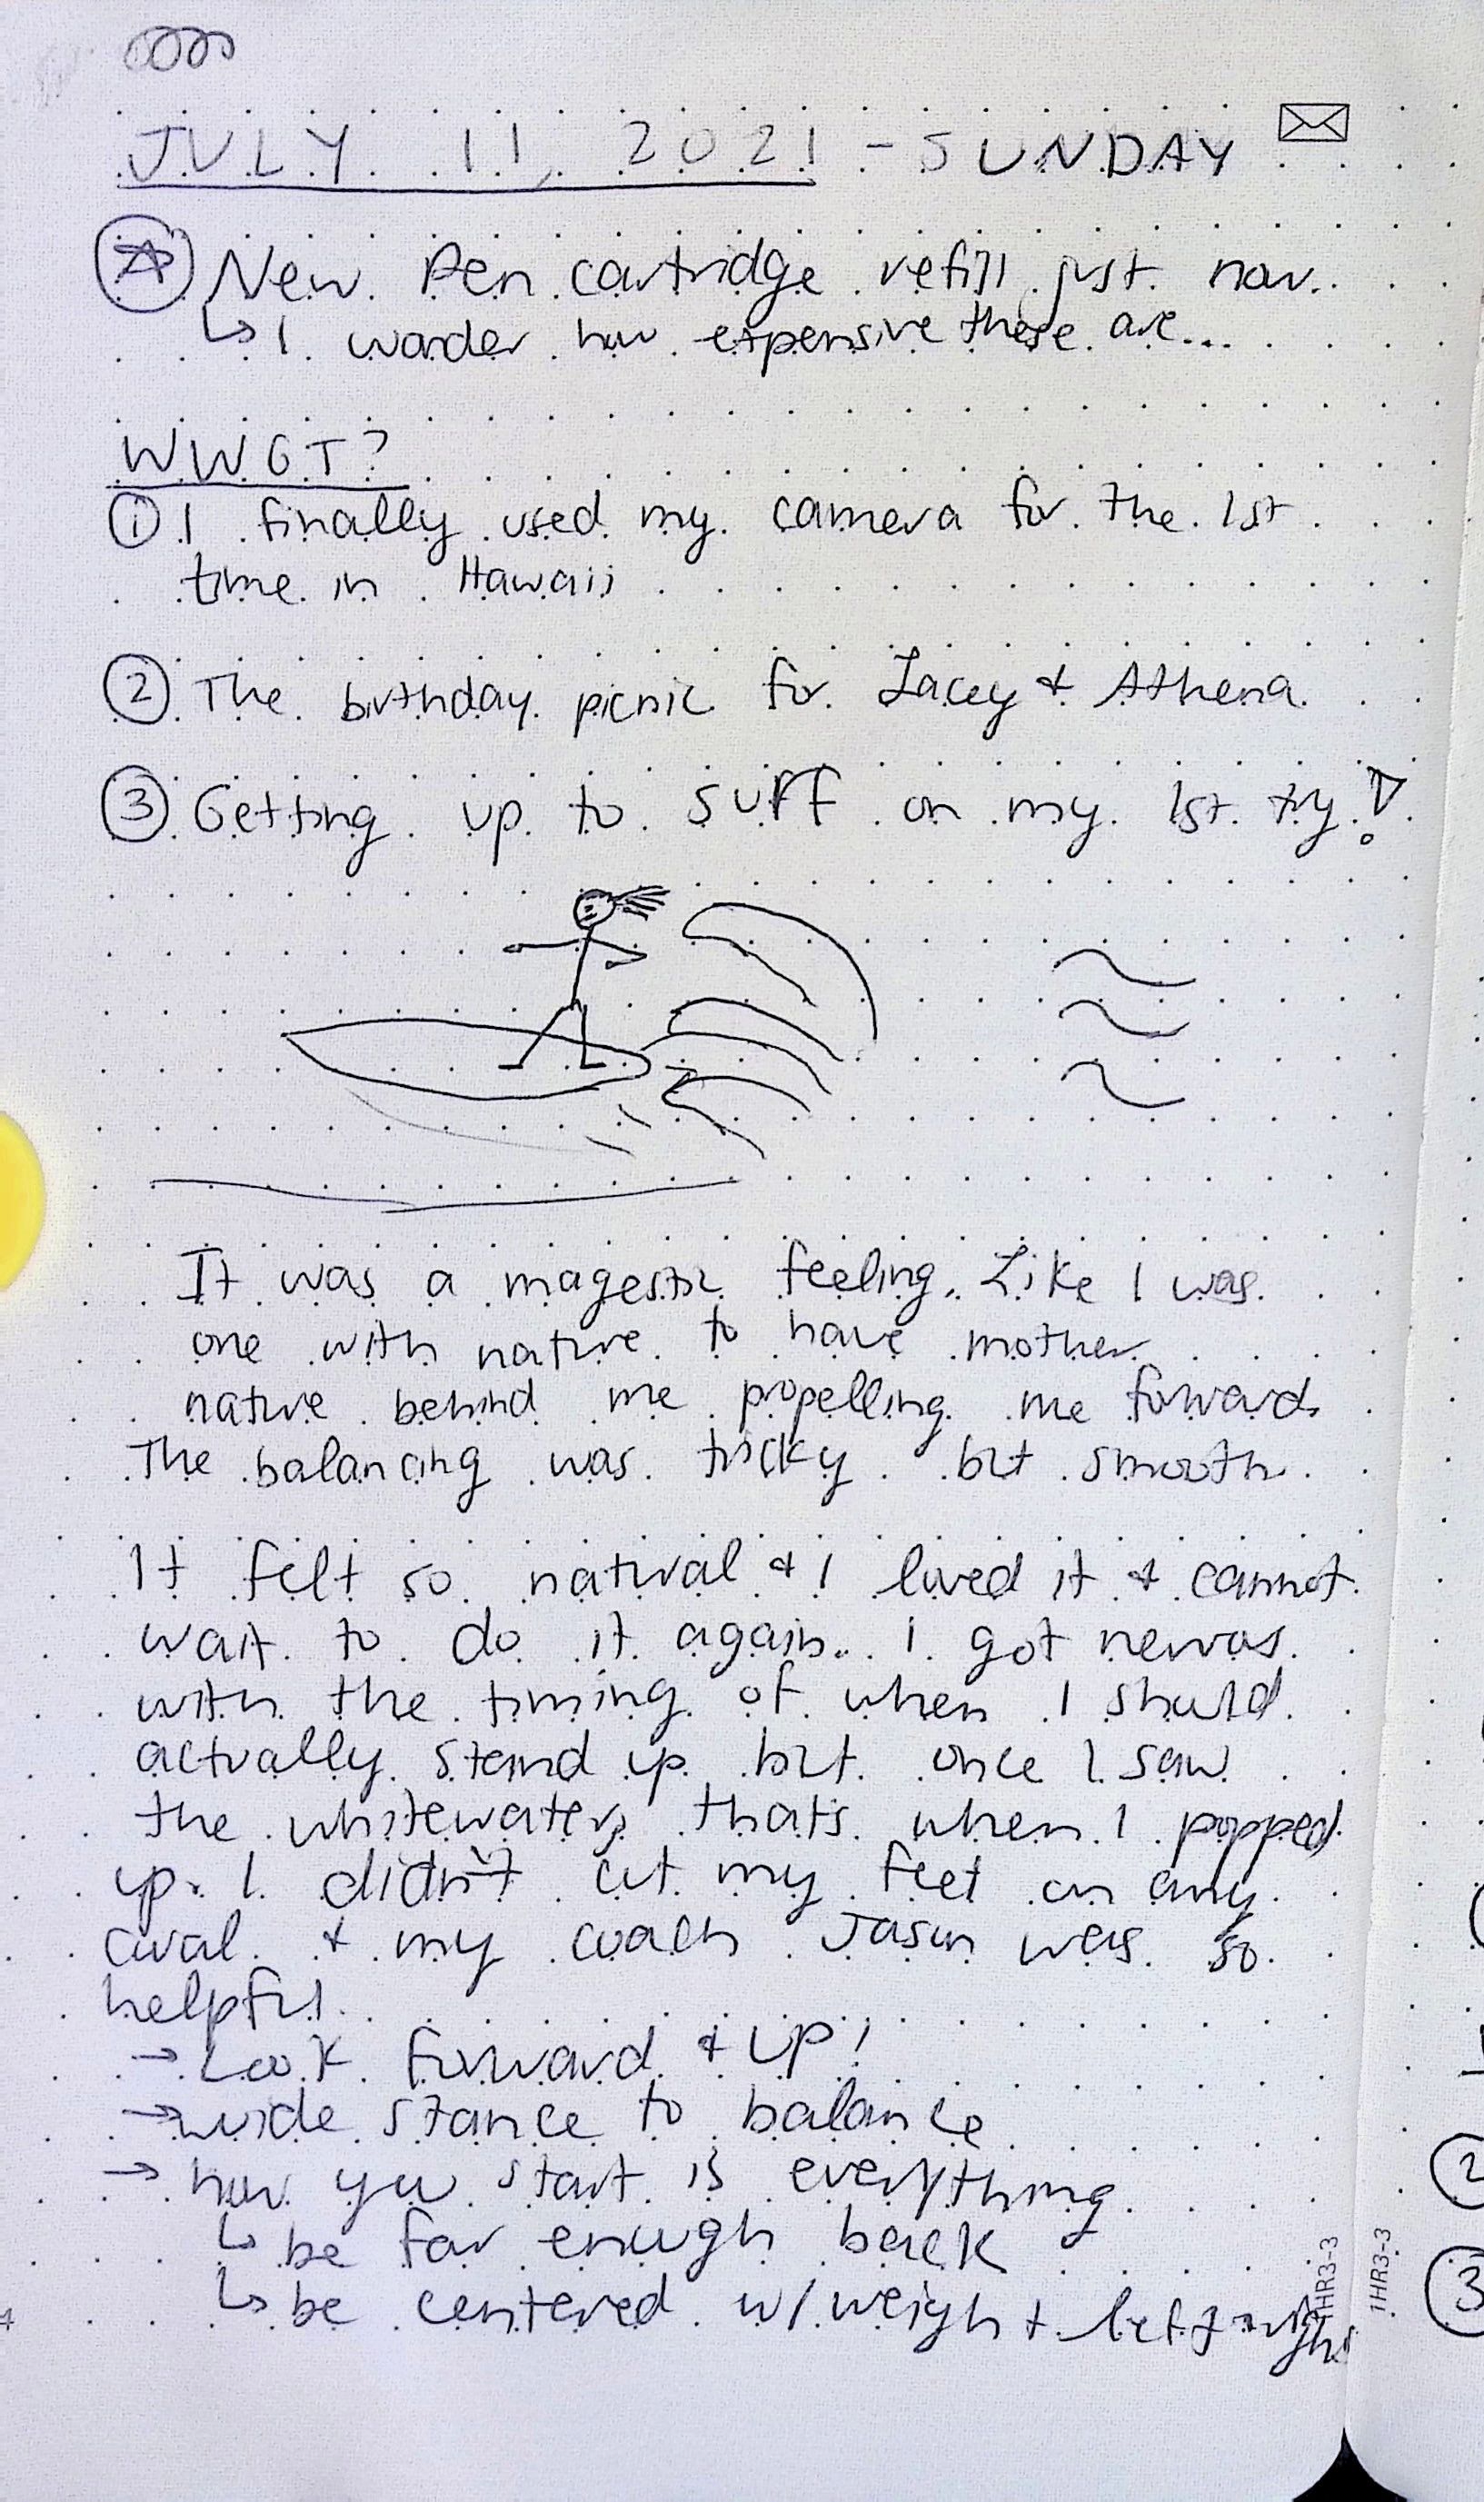 JULY 11, 2021 - SUNDAY
New Pen cartridge refill just now.
↳ I wonder how expensive these are...
WWGT?
① I finally used my camera for the 1st
time in Hawaii
② The birthday picnic for Lacey & Athena.
③ Getting up to surf on my 1st try!
It was a magestic feeling. Like I was
one with nature to have mother
nature behind me propelling me forward
The balancing was tricky but smooth.
It felt so natural & I loved it & cannot
wait to do it again. I got nervous
with the timing of when I should
actually stand up but once I saw
the whitewater, that's when I popped
up. I didn't cut my feet on any
coral & my coach Jason was so
helpful.
→ Look forward & UP!
→ wide stance to balance
→ how you start is everything
↳ be far enough back
↳ be centered w/ weight left & right
1HR3-3
1HR3-3
4
2
3